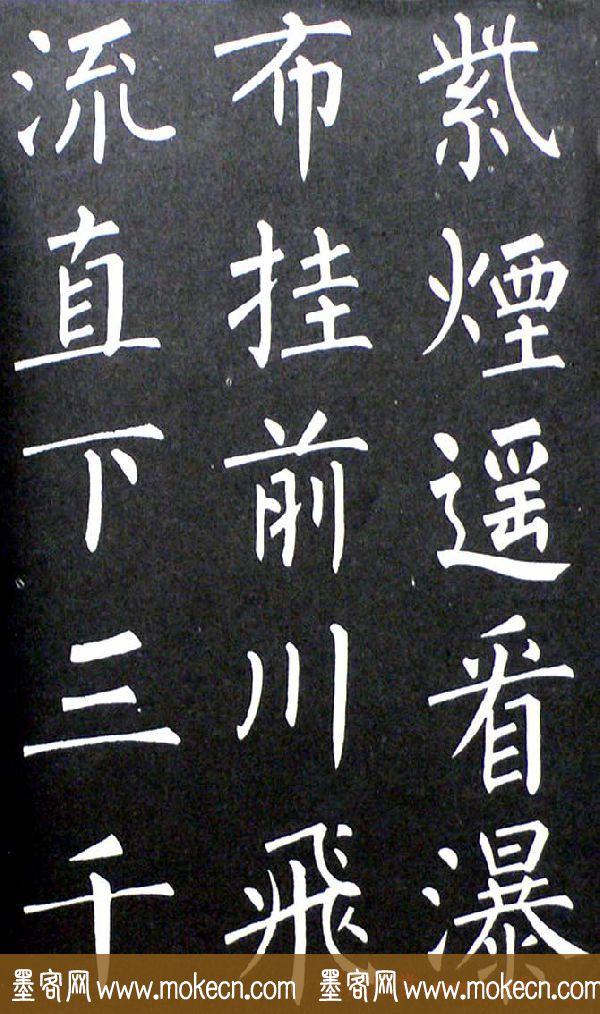 紫煙遥看瀑
布挂前川飛
流直下三千
墨客网 www.mokecn.com 墨客网 www.mokecn.com